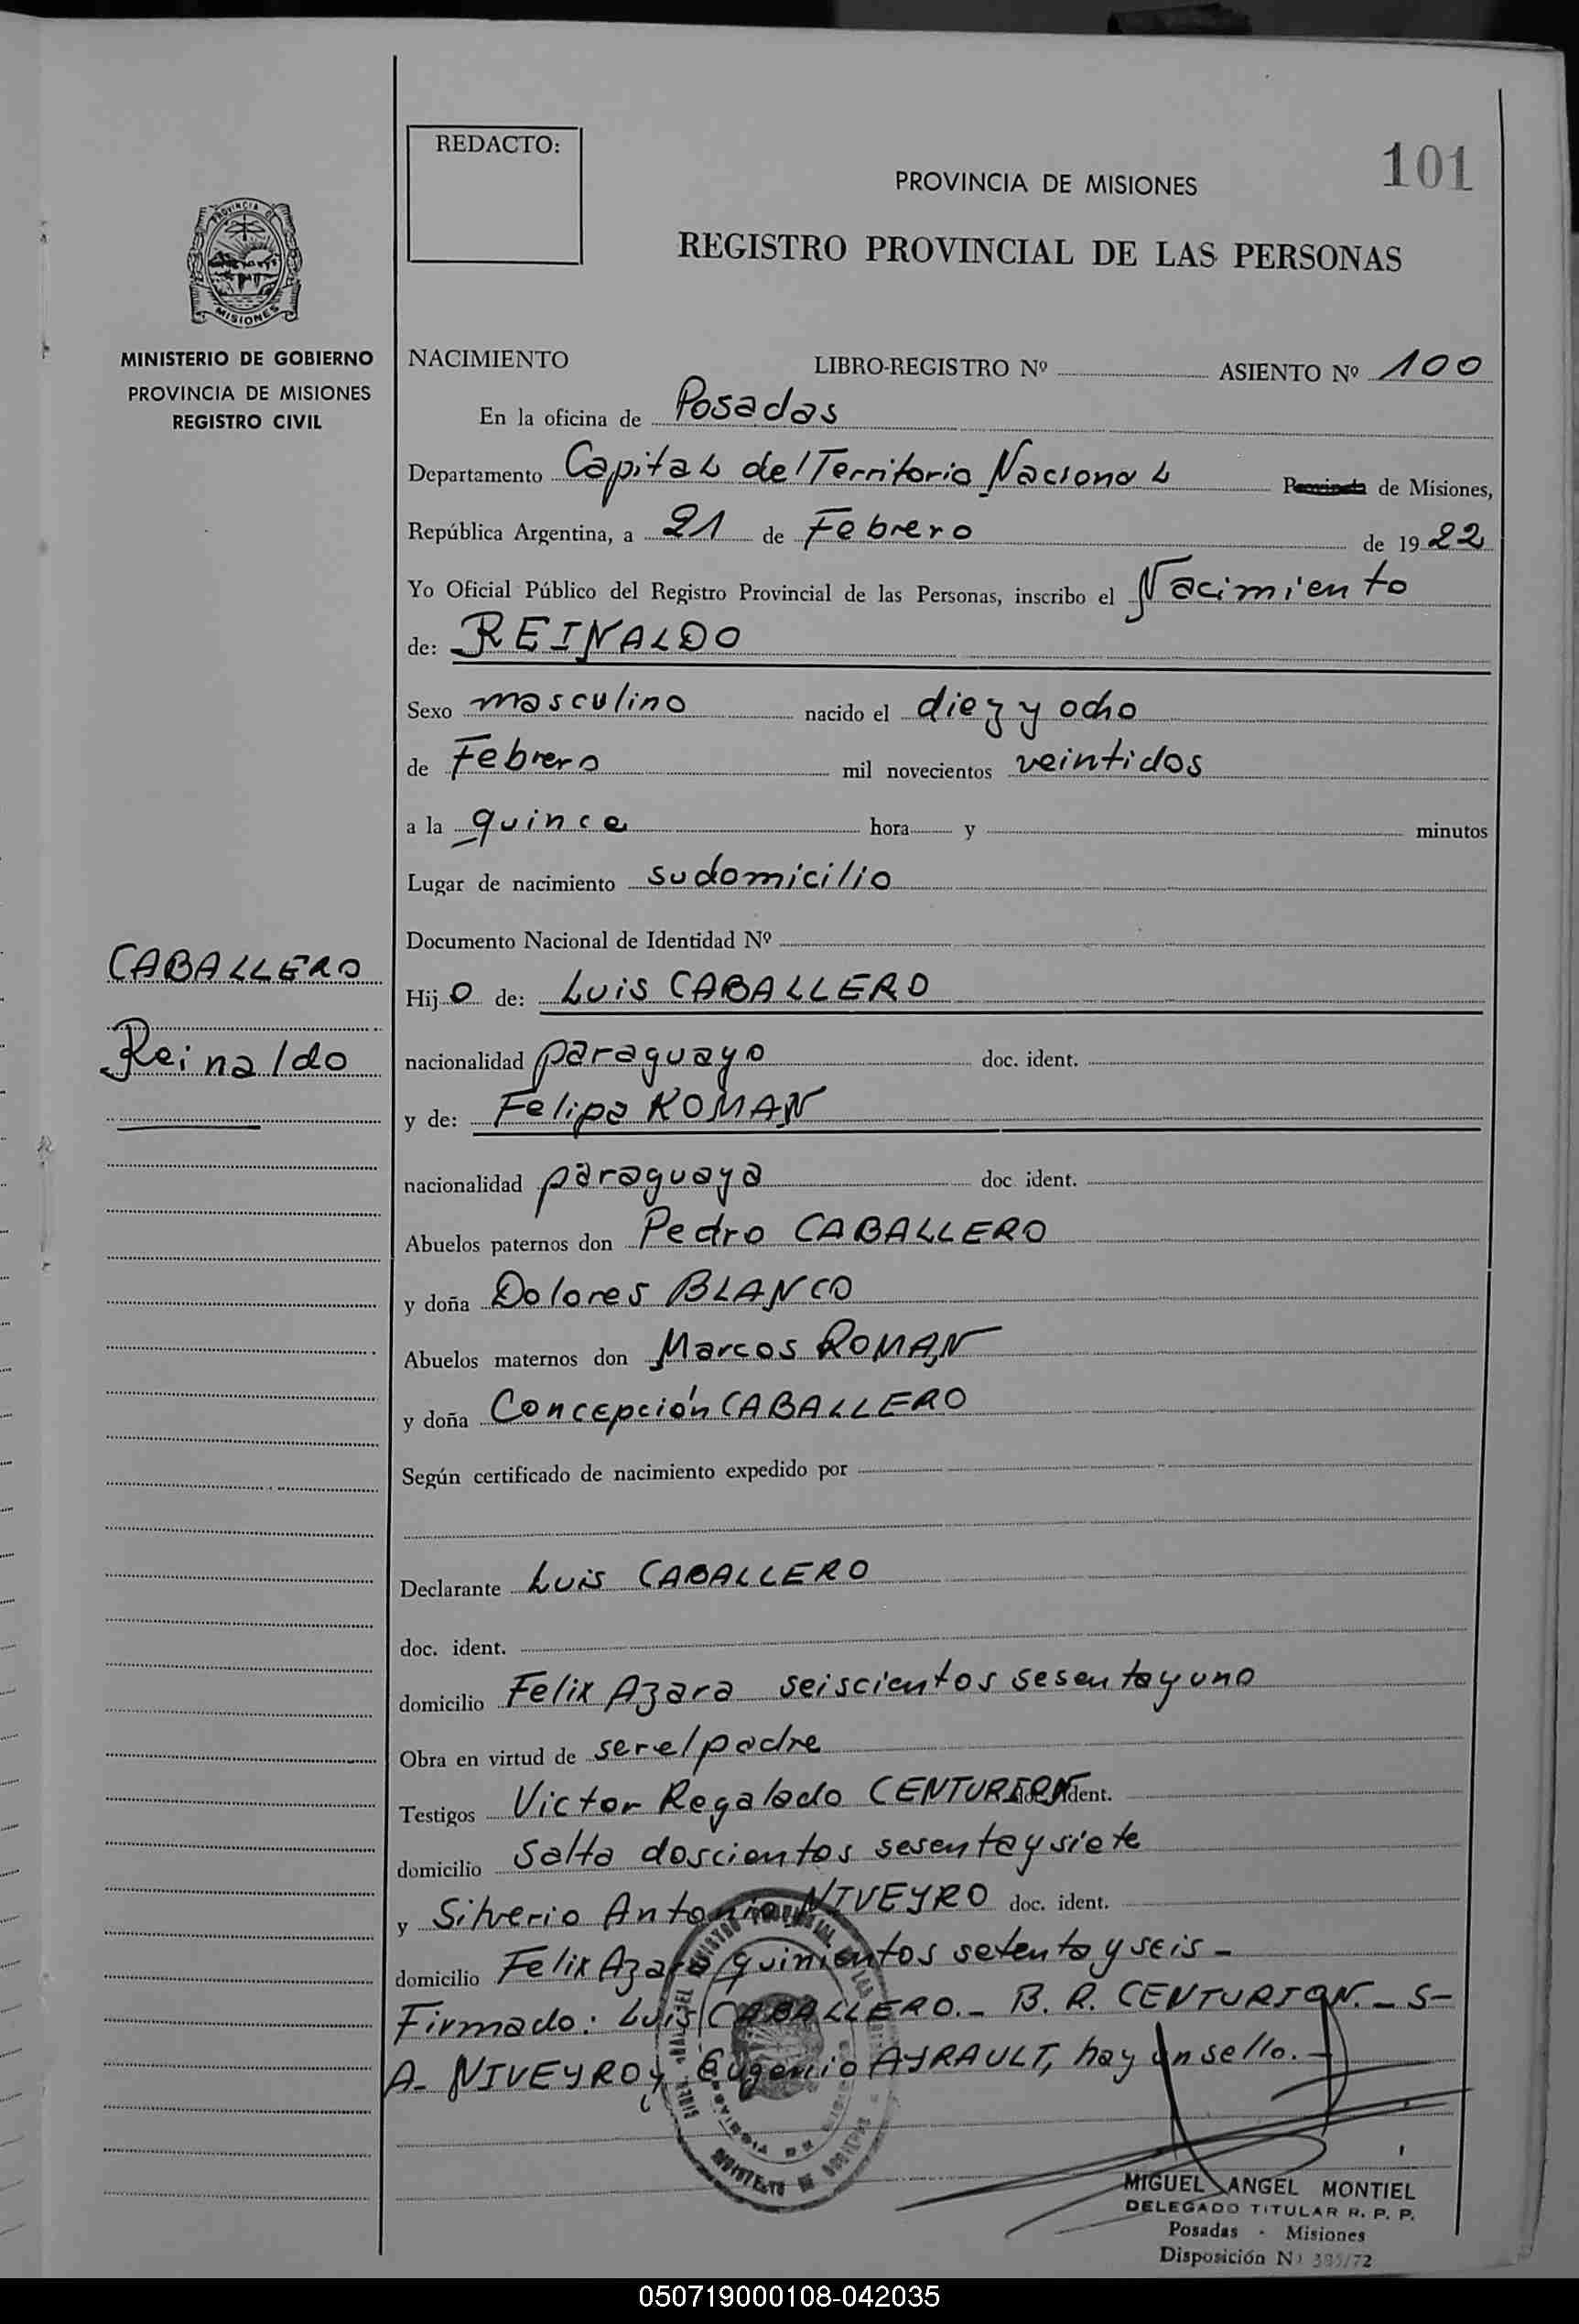 REDACTO:
101
PROVINCIA DE MISIONES
REGISTRO PROVINCIAL DE LAS PERSONAS
PROVINCIA DE
MISIONES
MINISTERIO DE GOBIERNO
PROVINCIA DE MISIONES
REGISTRO CIVIL
NACIMIENTO LIBRO-REGISTRO Nº ASIENTO Nº 100
En la oficina de Posadas
Departamento Capital del Territorio Nacional Provincia de Misiones,
República Argentina, a 21 de Febrero de 1922
Yo Oficial Público del Registro Provincial de las Personas, inscribo el Nacimiento
de: REINALDO
Sexo masculino nacido el diez y ocho
de Febrero mil novecientos veintidos
a la quince hora y minutos
Lugar de nacimiento su domicilio
Documento Nacional de Identidad Nº
CABALLERO
Reinaldo
Hijo de: Luis CABALLERO
nacionalidad paraguayo doc. ident.
y de: Felipa ROMAN
nacionalidad paraguaya doc ident.
Abuelos paternos don Pedro CABALLERO
y doña Dolores BLANCO
Abuelos maternos don Marcos ROMAN
y doña Concepción CABALLERO
Según certificado de nacimiento expedido por
Declarante Luis CABALLERO
doc. ident.
domicilio Felix Azara seiscientos sesenta y uno
Obra en virtud de ser el padre
Testigos Victor Regalado CENTURION doc. ident.
domicilio Salta doscientos sesenta y siete
y Silverio Antonio NIVEYRO doc. ident.
domicilio Felix Azara quinientos setenta y seis -
Firmado: Luis CABALLERO.- B. R. CENTURION.- S-
A- NIVEYRO y Eugenio AYRAULT, hay un sello.-
MIGUEL ANGEL MONTIEL
DELEGADO TITULAR R. P. P.
Posadas - Misiones
Disposición Nº /72
050719000108-042035